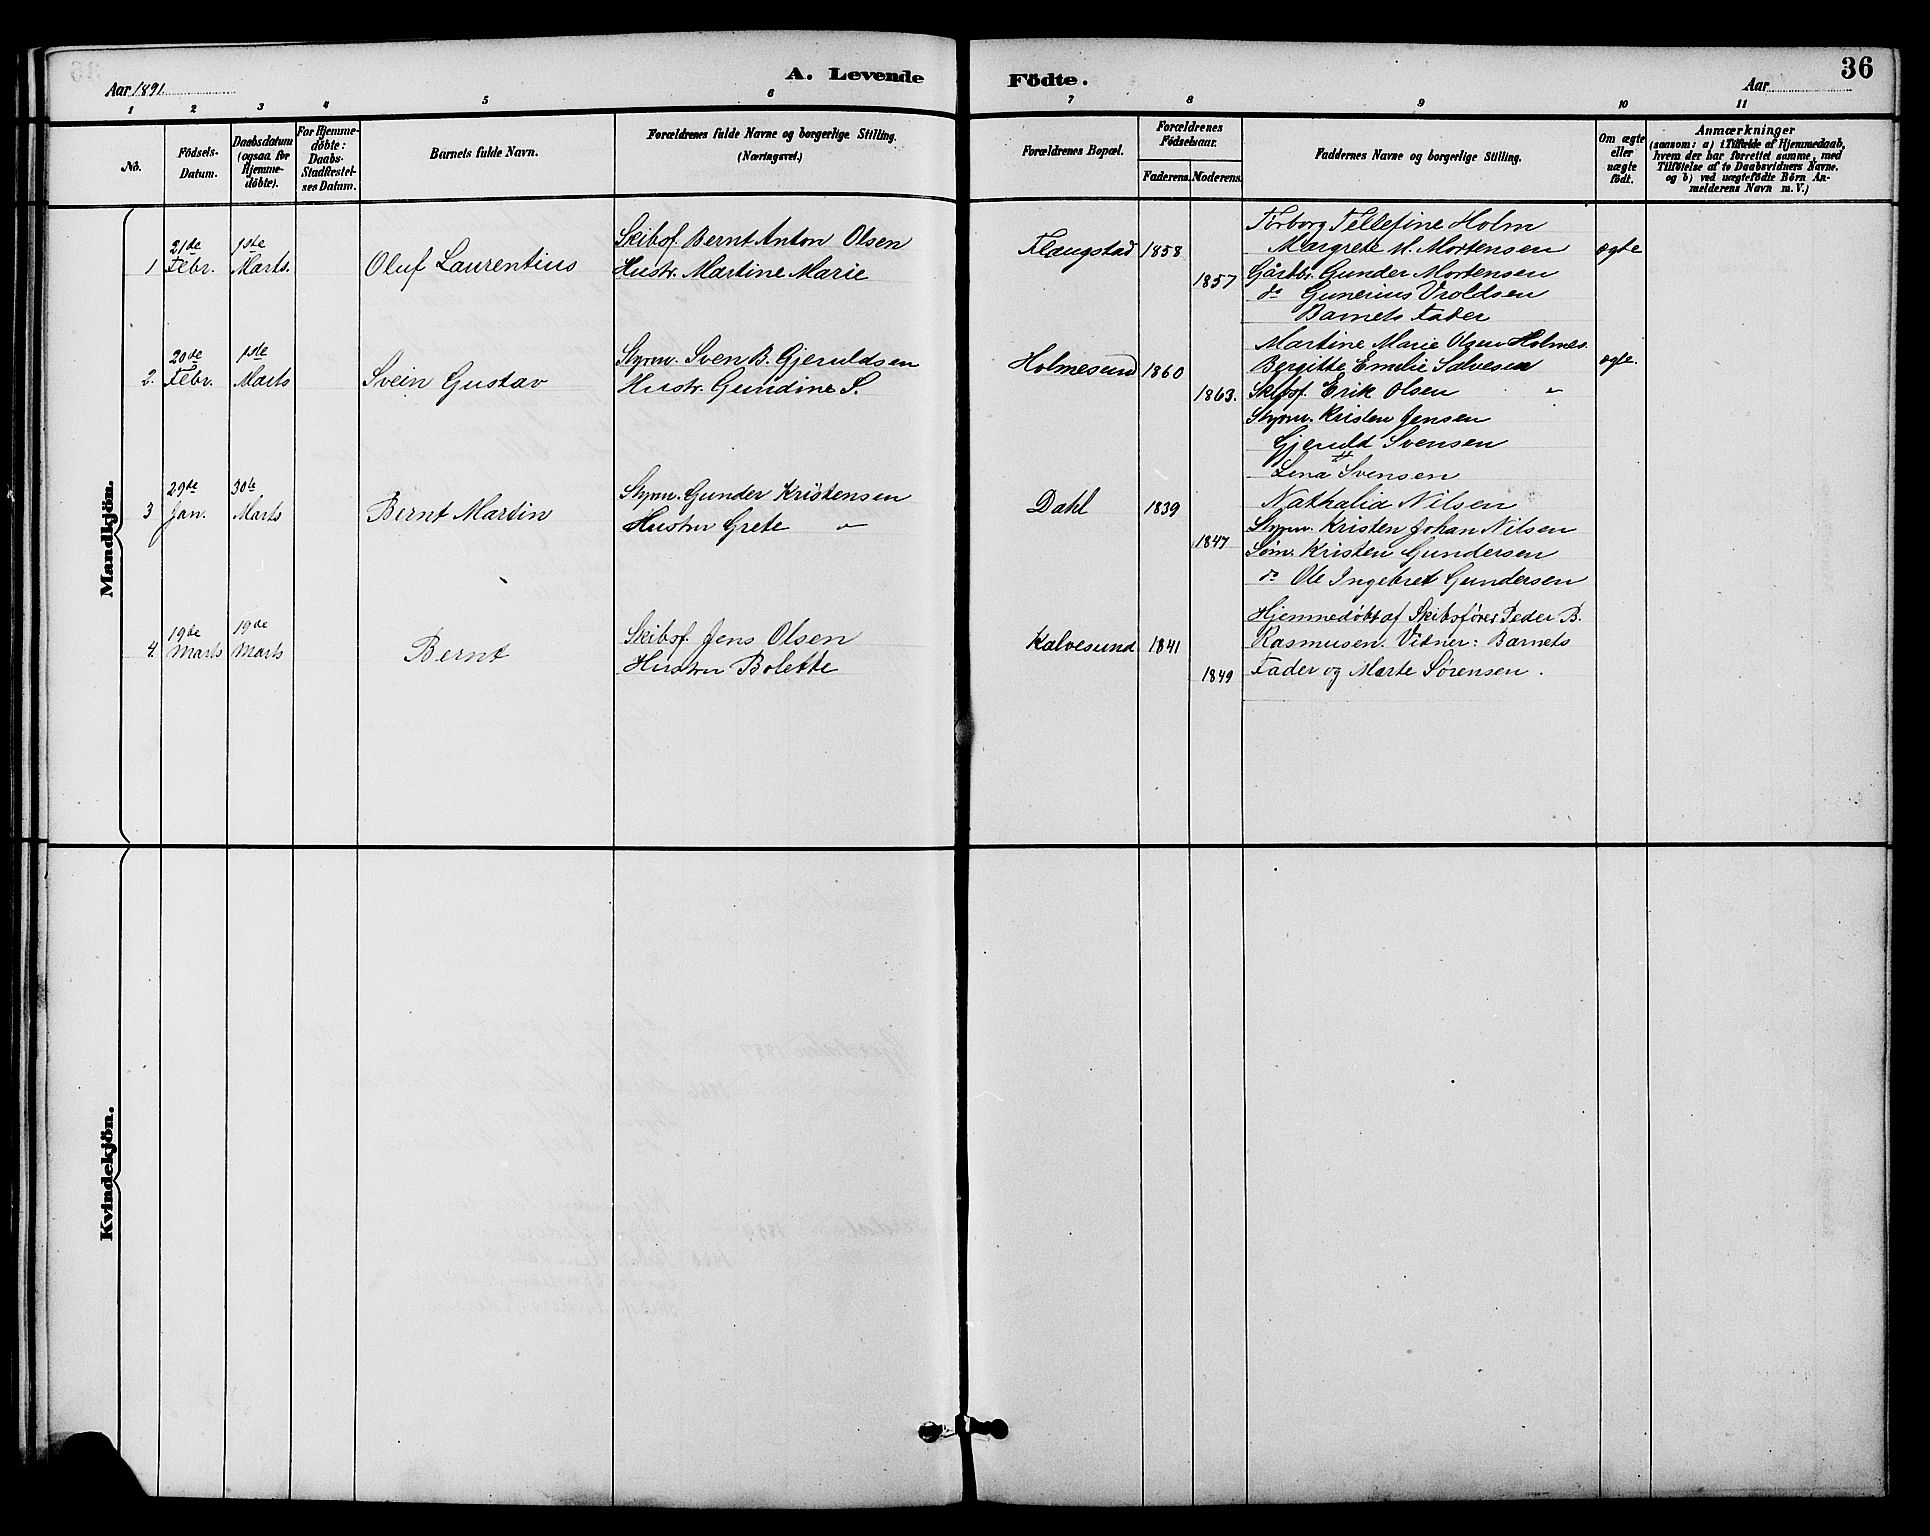 A. Levende Födte.
36
Aar 1891.
Aar
1 2 3 4 5 6 7 8 9 10 11
No.
Födsels-Datum.
Daabsdatum (ogsaa for Hjemme-döbte).
For Hjemme-döbte: Daabs-Stadfæstel-ses Datum.
Barnets fulde Navn.
Forældrenes fulde Navne og borgerlige Stilling.
(Næringsvei.)
Forældrenes Bopæl.
Forældrenes Födselsaar.
Faderens. Moderens.
Faddernes Navne og borgerlige Stilling.
Om ægte eller uægte födt.
Anmærkninger
(saasom: a) i Tilfælde af Hjemmedaab,
hvem der har forrettet samme, med
Tilföielse af to Daabsvidners Navne.
og b) ved uægtefödte Börn An-
melderens Navn m. V.)
Mandkjön.
1 21de Febr. 1ste Marts. Oluf Laurentius
Skibsf. Bernt Anton Olsen
Hustr. Martine Marie
Flaugstad 1858
1857
Torborg Tellefine Holm
Margrete M. Mortensen
Gårdbr. Gunder Mortensen
do Gunerius Vroldsen
Barnets Fader
ægte
2. 20de Febr. 1ste Marts Svein Gustav
Styrm. Sven B. Gjeruldsen
Hustr. Gundine S.
Holmesund 1860
1863.
Martine Marie Olsen Holmes.
Bergitte Emelie Salvesen
Skibsf. Erik Olsen "
Styrm. Kristen Jensen
Gjeruld Svensen
ægte.
3 29de Jan. 30te Marts Bernt Martin
Styrm. Gunder Kristensen
Hustru Grete "
Dahl 1839
1847
Lena Svensen
Nathalia Nilsen
Styrm. Kristen Johan Nilsen
Søm. Kristen Gundersen
do Ole Ingebret Gundersen
4. 19de Marts 19de Marts Bernt
Skibsf. Jens Olsen
Hustru Bolette
Kalvesund 1841
1849
Hjemmedøbt af Skibsfører Peder B.
Rasmusen. Vidner: Barnets
Fader og Marte Sørensen.
Kvindekjön.